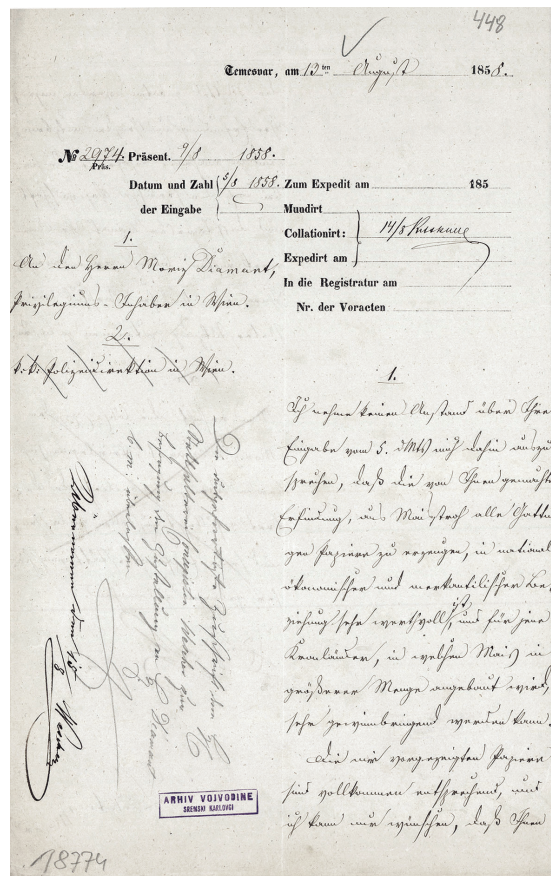 448
Temesvar, am 13ten August 1858.
No 2974. Präsent. 9/8 1858.
Präs.
Datum und Zahl 5/8 1858. Zum Expedit am 185
der Eingabe Mundirt
Collationirt: 14/8
Expedirt am
In die Registratur am
Nr. der Voracten
1.
An den Herrn Moriz Diamant,
Privilegiums-Inhaber in Wien.
2.
k.k. Polizeidirektion in Wien.
1.
Ich nehme keinen Anstand über Ihre
Eingabe vom 5. d Mts mich dahin auszu
sprechen, daß die von Ihnen gemachte
Erfindung, aus Maisstroh alle Gattun
gen Papiere zu erzeugen, in national
ökonomischer und merkantilischer Be
ziehung sehr werthvoll ist, und für jene
Kronländer, in welchen Mais in
größerer Menge angebaut wird,
sehr gewinnbringend werden kann.
Die mir vorgezeigten Papiere
sind vollkommen entsprechend, und
ich kann nur wünschen, daß Ihnen
Übernommen den 15/8
ARHIV VOJVODINE
SREMSKI KARLOVCI
18774